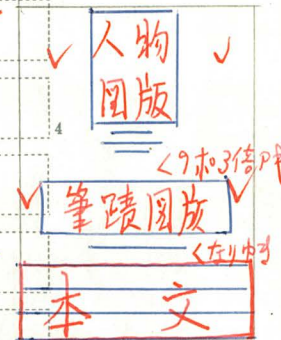 人物
図版
4
<9ポ3倍アキ
筆蹟図版
<なりゆき
本文